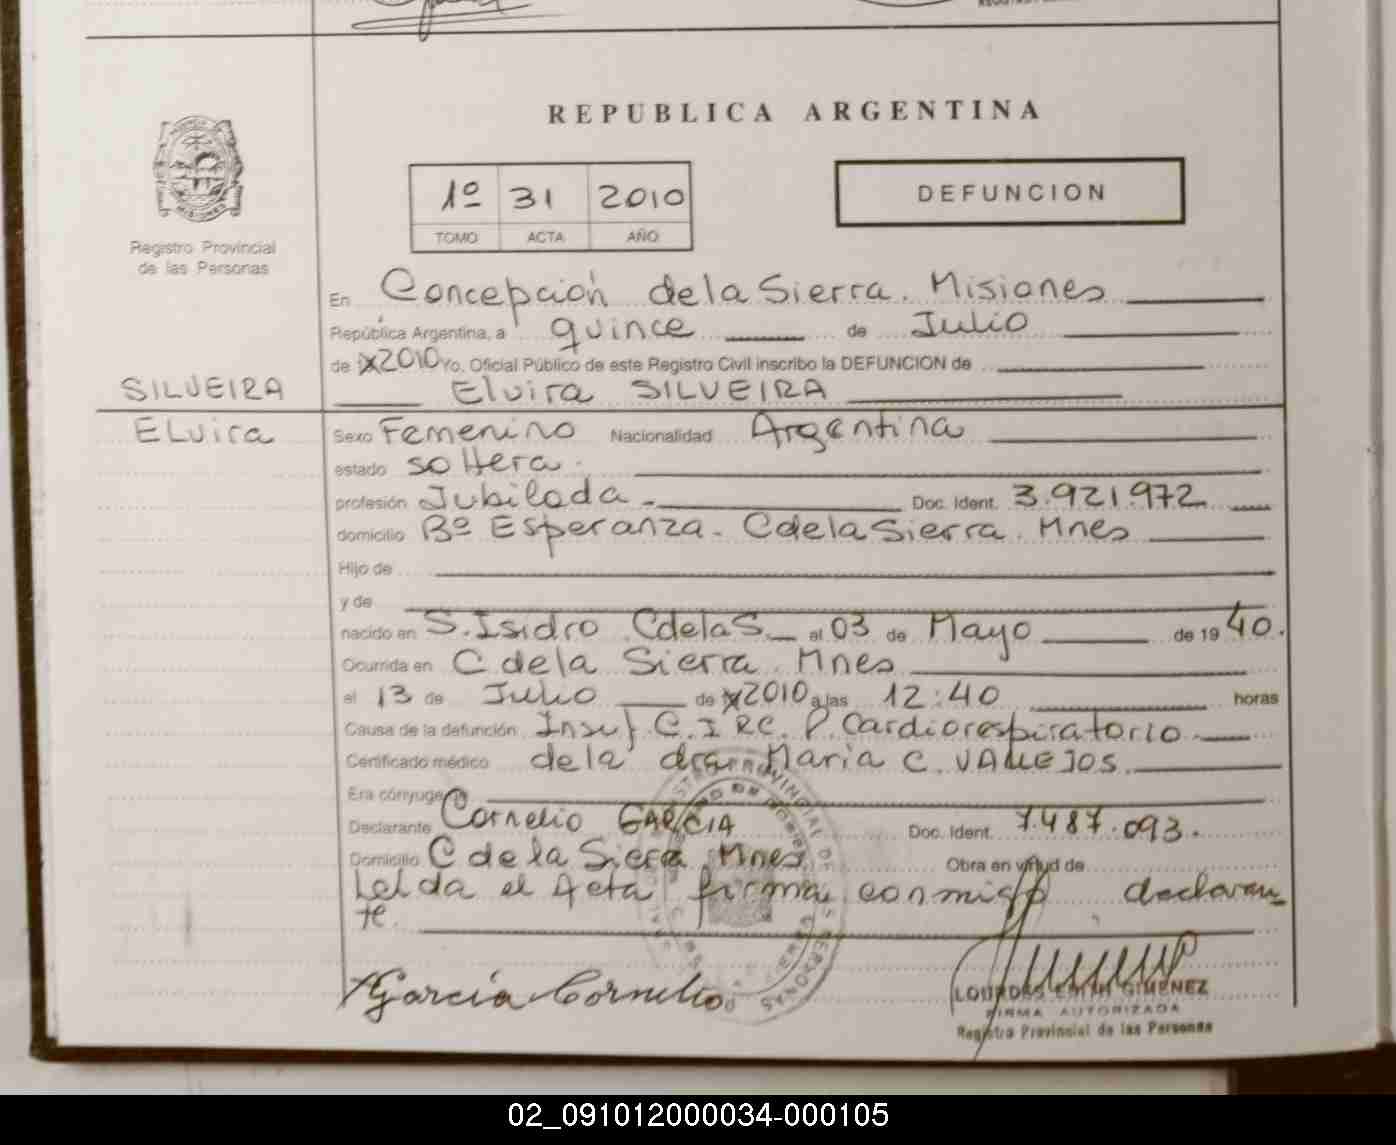 REPUBLICA ARGENTINA
1º 31 2010
TOMO ACTA AÑO
DEFUNCION
Registro Provincial
de las Personas
En Concepción de la Sierra. Misiones
República Argentina, a quince de Julio
de 2010 Yo, Oficial Público de este Registro Civil inscribo la DEFUNCION de
SILVEIRA
Elvira SILVEIRA
Elvira
Sexo Femenino Nacionalidad Argentina
estado soltera.
profesión Jubilada. Doc. Ident. 3.921.972
domicilio Bº Esperanza. C de la Sierra. Mnes
Hijo de
y de
nacido en S. Isidro C de la S. el 03 de Mayo de 1940.
Ocurrida en C de la Sierra. Mnes
el 13 de Julio de 2010 a las 12:40 horas
Causa de la defunción Insuf C. I RC. P. Cardiorespiratorio
Certificado médico de la dra. Maria C. VALLEJOS.
Era cónyuge de
Declarante Cornelio GARCIA Doc. Ident. 7.487.093.
Domicilio C de la Sierra Mnes Obra en virtud de
Leida el Acta firma conmigo declaran
te.
Garcia Cornelio
LOURDES GIMENEZ
FIRMA AUTORIZADA
Registro Provincial de las Personas
02_091012000034-000105